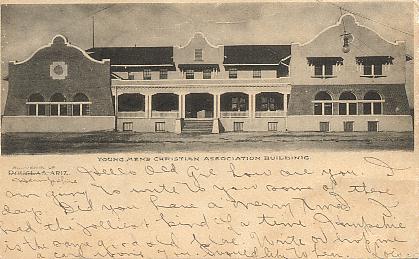 YOUNG MENS CHRISTIAN ASSOCIATION BUILDING
SOUVENIR OF
DOUGLAS ARIZ.
Hello Old Gee how are you. I
am going to write to you some of these
days. Did you have a merry Xmas? I
had the jolliest kind of a time.
is the same good old place. Write or drop me
a card soon. Would like to hear.